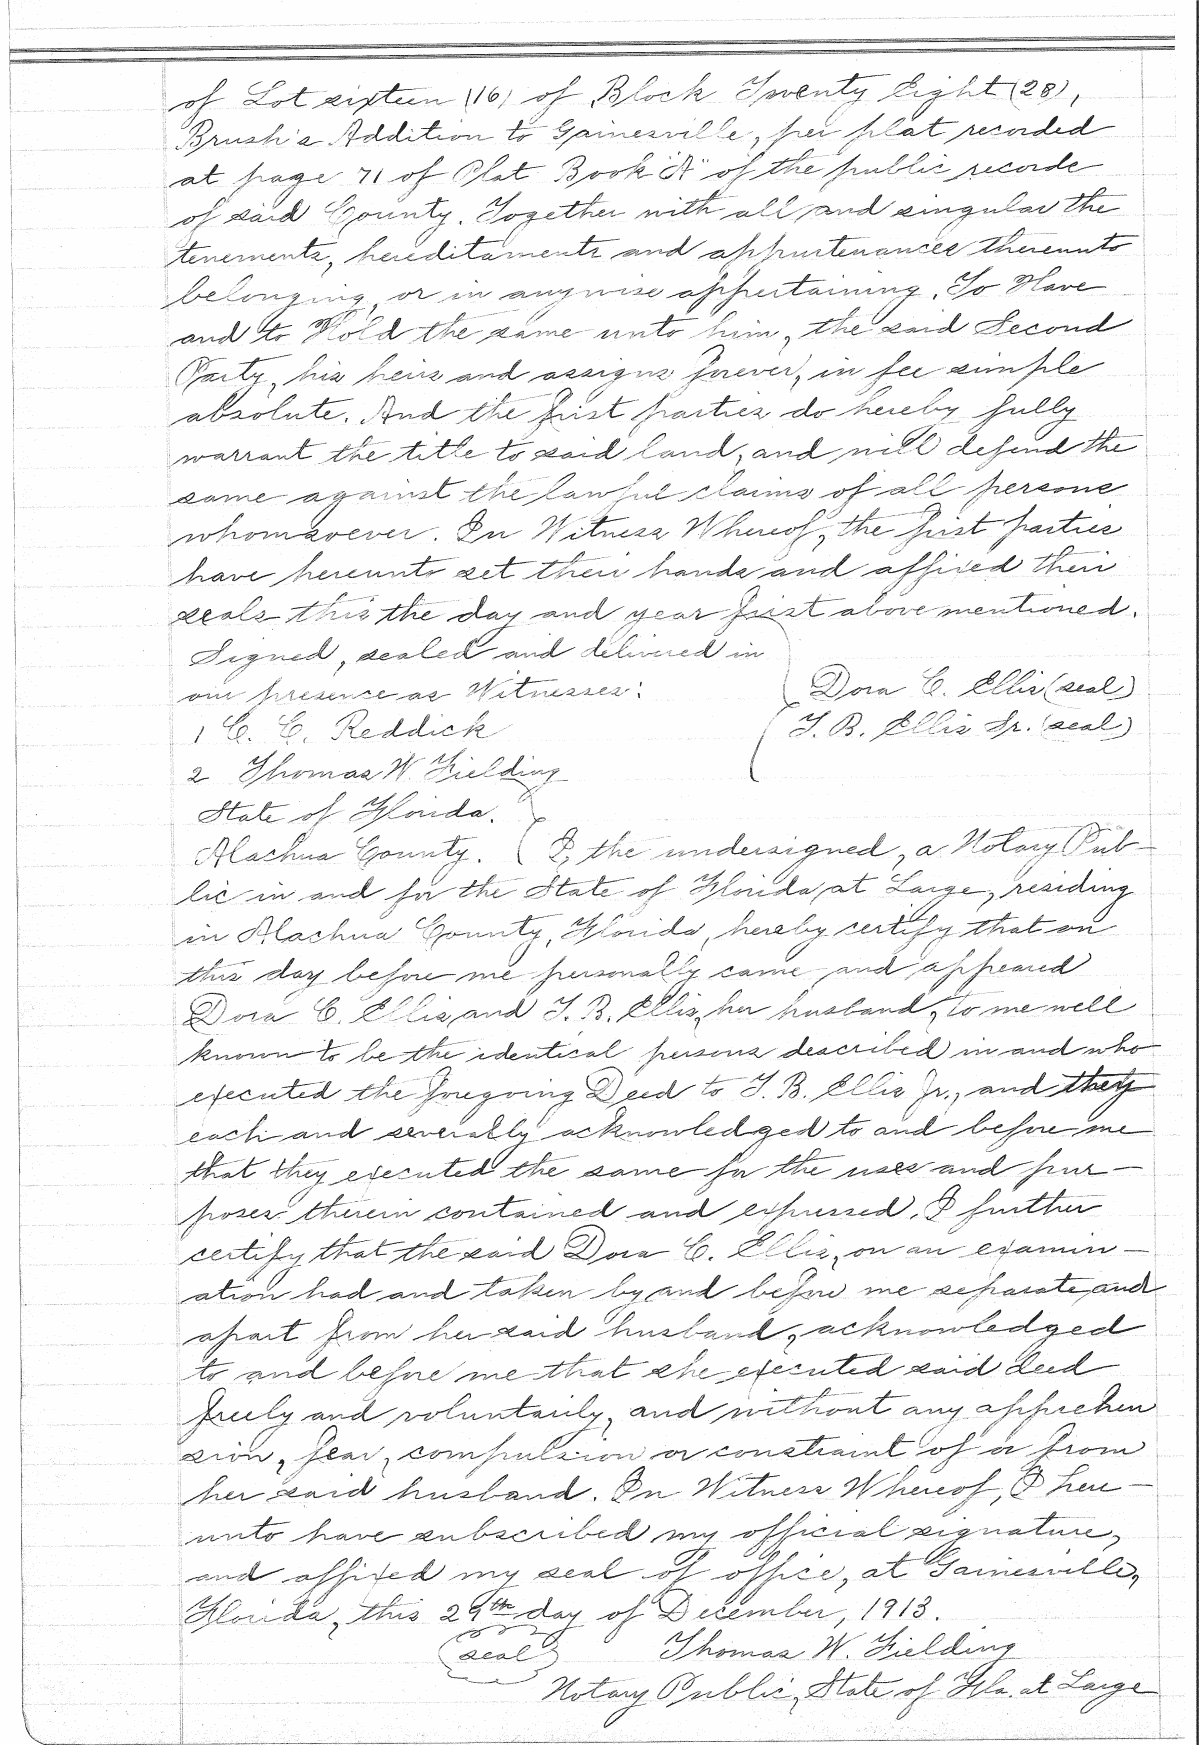 of Lot sixteen (16) of Block Twenty Eight (28),
Brush's Addition to Gainesville, per plat recorded
at page 71 of Plat Book "A" of the public records
of said County. Together with all and singular the
tenements, hereditaments and appurtenances thereunto
belonging, or in anywise appertaining. To Have
and to Hold the same unto him, the said Second
Party, his heirs and assigns forever, in fee simple
absolute. And the first parties do hereby fully
warrant the title to said land, and will defend the
same against the lawful claims of all persons
whomsoever. In Witness Whereof, the first parties
have hereunto set their hands and affixed their
seals this the day and year first above mentioned.
Signed, sealed and delivered in
our presence as Witnesses:
Dora C. Ellis (seal)
1 C. C. Reddick
T. B. Ellis Sr. (seal)
2 Thomas W. Fielding
State of Florida.
Alachua County. I, the undersigned, a Notary Pub-
lic in and for the State of Florida, at Large, residing
in Alachua County, Florida, hereby certify that on
this day before me personally came and appeared
Dora C. Ellis, and T. B. Ellis, her husband, to me well
known to be the identical persons described in and who
executed the foregoing Deed to T. B. Ellis Jr., and they
each and severally acknowledged to and before me
that they executed the same for the uses and pur-
poses therein contained and expressed. I further
certify that the said Dora C. Ellis, on an examin-
ation had and taken by and before me separate and
apart from her said husband, acknowledged
to and before me that she executed said deed
freely and voluntarily, and without any apprehen
sion, fear, compulsion or constraint of or from
her said husband. In Witness Whereof, I here-
unto have subscribed my official signature,
and affixed my seal of office, at Gainesville,
Florida, this 29th day of December, 1913.
(seal) Thomas W. Fielding
Notary Public, State of Fla. at Large